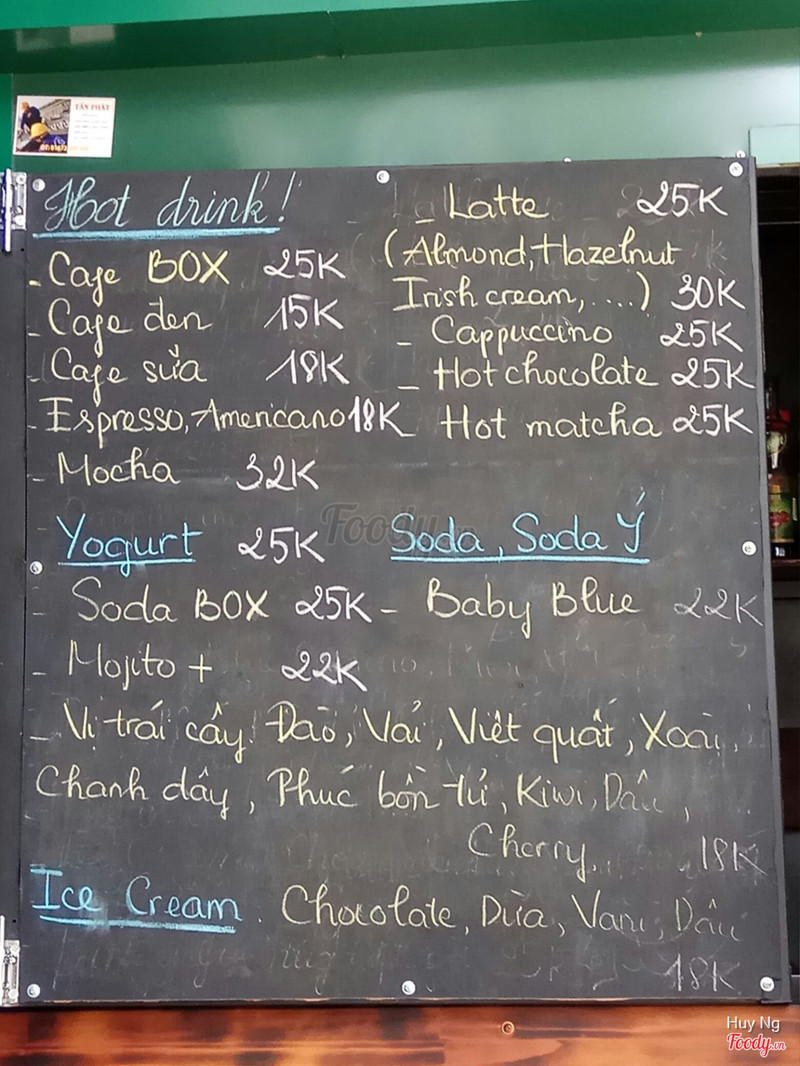 TẤN PHÁT
Hot drink!
- Cafe BOX 25K
- Cafe đen 15K
- Cafe sữa 18K
- Espresso, Americano 18K
- Mocha 32K
- Latte 25K
(Almond, Hazelnut
Irish cream, ....) 30K
- Cappuccino 25K
- Hot chocolate 25K
- Hot matcha 25K
Yogurt 25K
Soda, Soda Ý
- Soda BOX 25K - Baby Blue 22K
- Mojito + 22K
- Vị trái cây: Đào, Vải, Việt quất, Xoài,
Chanh dây, Phúc bồn tử, Kiwi, Dâu,
Cherry. 18K
Ice Cream. Chocolate, Dừa, Vani, Dâu
18K
Foody
Huy Ng
Foody.vn